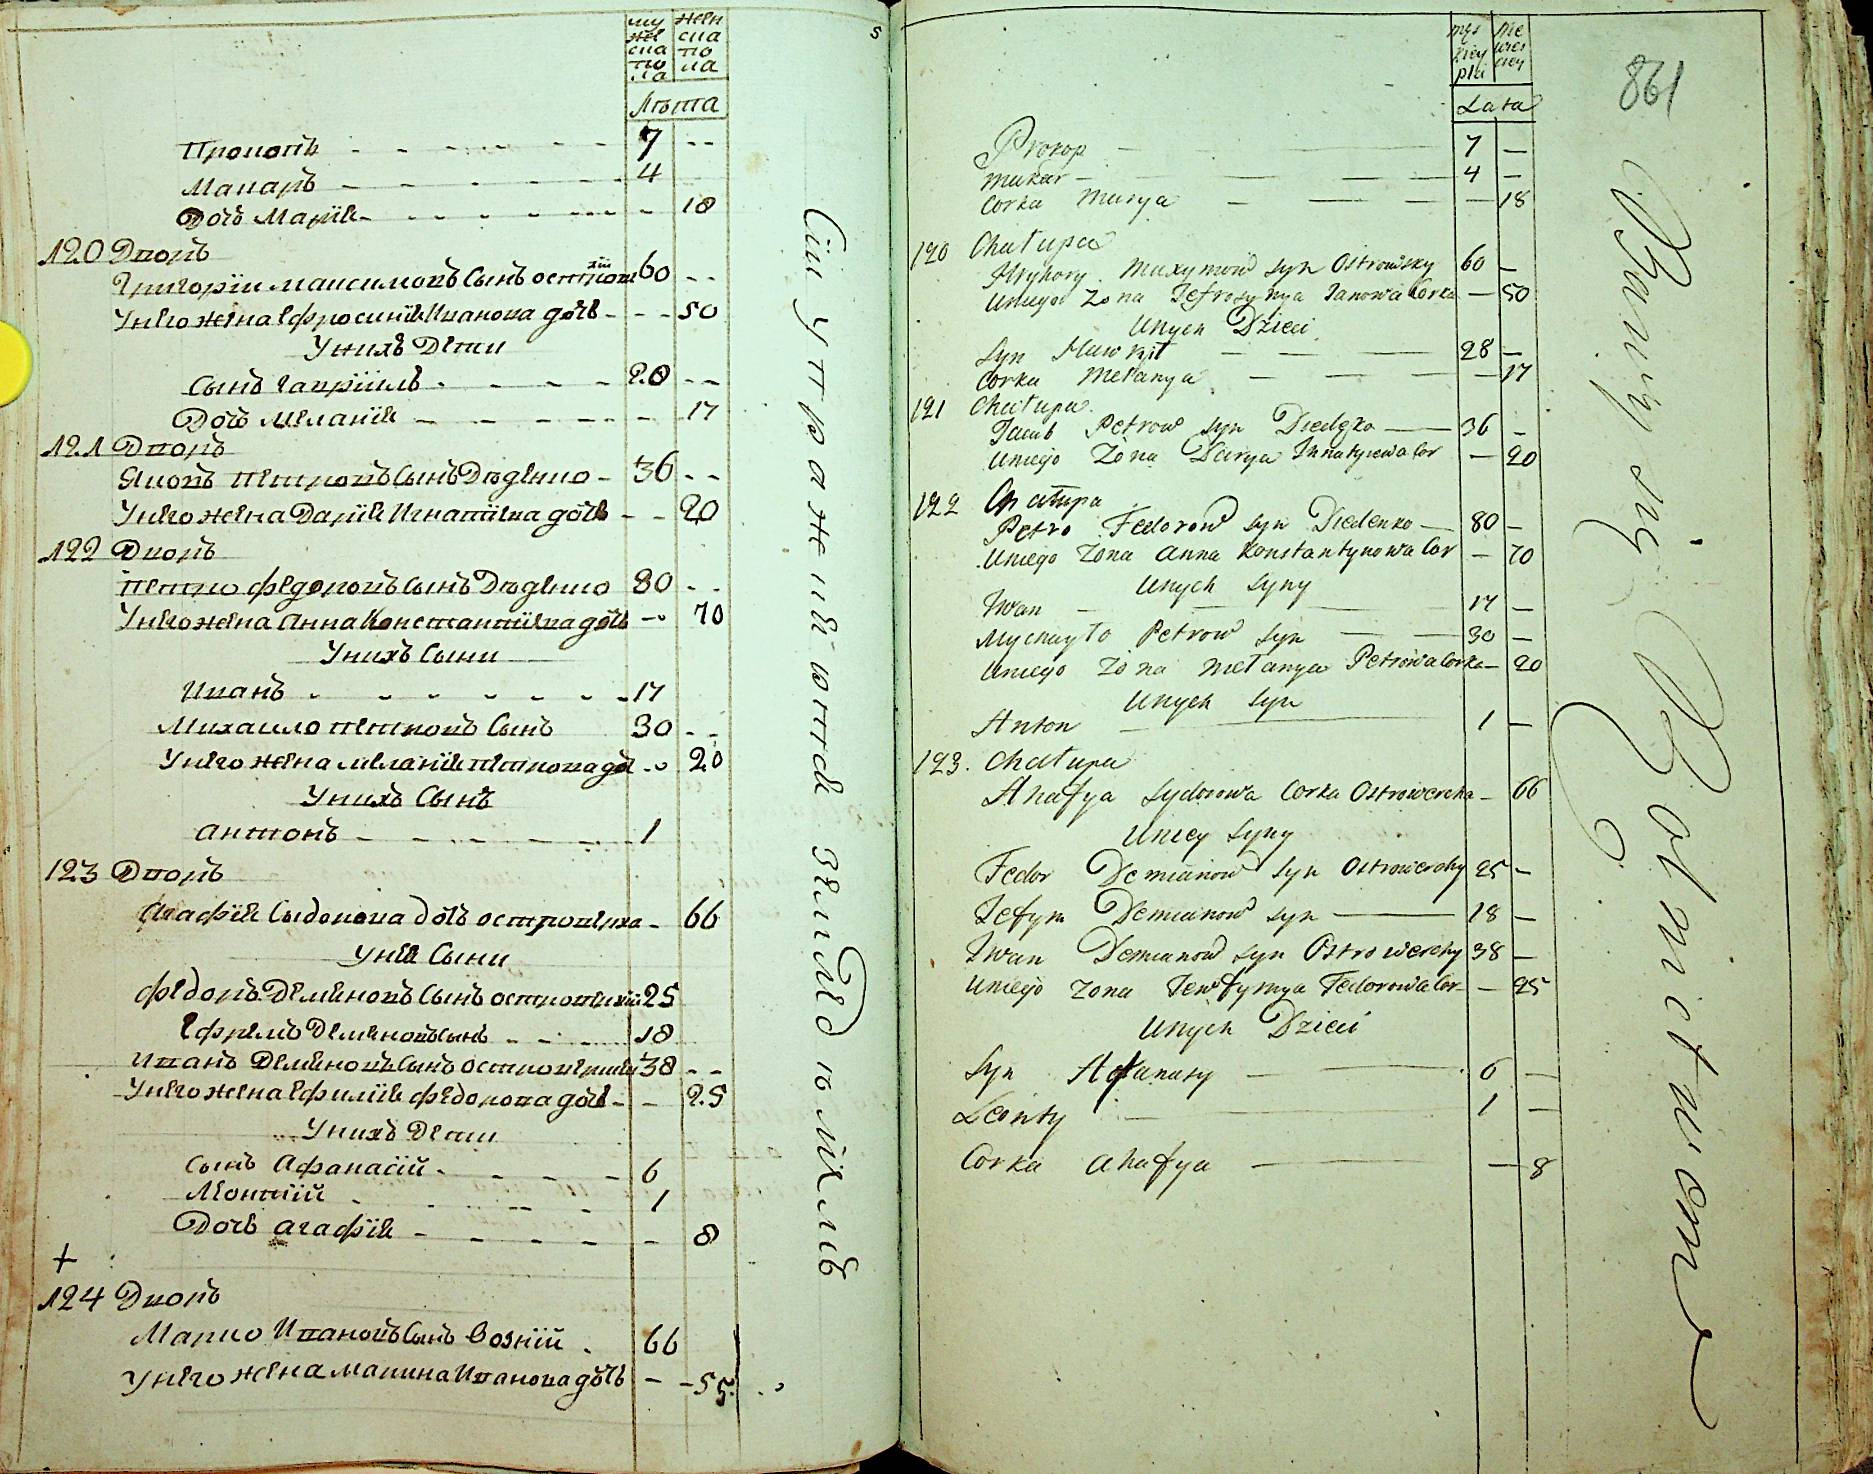 мужеска пола женска пола
Лѣта
Прокопъ 7 --
Макаръ 4
Дочь Марія - 18
120 Дворъ
Григорій Максимовъ Сынъ Островскій 60 --
У него жена Ефросинія Иванова дочь - 50
У нихъ Дети
Сынъ Гавріилъ 28 --
Дочь Меланія - 17
121 Дворъ
Яковъ Петровъ Сынъ Дѣденко 36 --
У него жена Дарія Игнатіева дочь - 20
122 Дворъ
Петро Федоровъ Сынъ Дѣденко 80 --
У него жена Анна Константіева дочь - 70
У нихъ Сыни
Иванъ 17
Михаило Петровъ Сынъ 30 --
У него жена Меланія Петрова до - 20
У нихъ Сынъ
Антонъ 1
123 Дворъ
Агафія Сыдорова дочь Островерха - 66
У нея Сыни
Федоръ Демяновъ Сынъ Островерхій 25
Ефремъ Демяновъ Сынъ 18
Иванъ Демяновъ Сынъ Островерхій 38 --
У него жена Ефимія Федорова дочь - 25
У нихъ Дети
Сынъ Афанасій 6
Леонтій 1
Дочь Агафія - 8
+
124 Дворъ
Марко Ивановъ Сынъ Возній 66
У него жена Марина Иванова дочь - 55
5
męskiey płci
Lata
861
Prokop 7 —
Makar 4 —
Corka Marya — 18
120 Chałupa
Hryhory Maxymow syn Ostrowsky 60 —
Uniego Zona Jefrosynya Janowa Corka — 50
Unych Dzieci
Syn Hawryił 28 —
Corka Metanya — 17
121 Chałupa
Jacub Petrow syn Diedęko 36 —
Uniego Zona Darya Ihnatyiewa Cor — 20
122 Chałupa
Petro Fedorow syn Diedenko 80 —
Uniego Zona Anna Konstantynowa Cor — 70
Unych Syny
Iwan 17 —
Mychayło Petrow Syn 30 —
Uniego Zona Mełanya Petrowa Corka — 20
Unych Syn
Anton 1 —
123. Chałupa
Ahafya Sydorowa Corka Ostrowercha — 66
Uniey Syny
Fedor Demianow Syn Ostrowerchy 25 —
Jefym Demianow syn 18 —
Iwan Demianow syn Ostrowerchy 38 —
Uniego Zona Jewfymya Fedorowa Cor — 25
Unych Dzieci
Syn Afanasy 6 —
Leonty 1 —
Corka Ahafya — 8